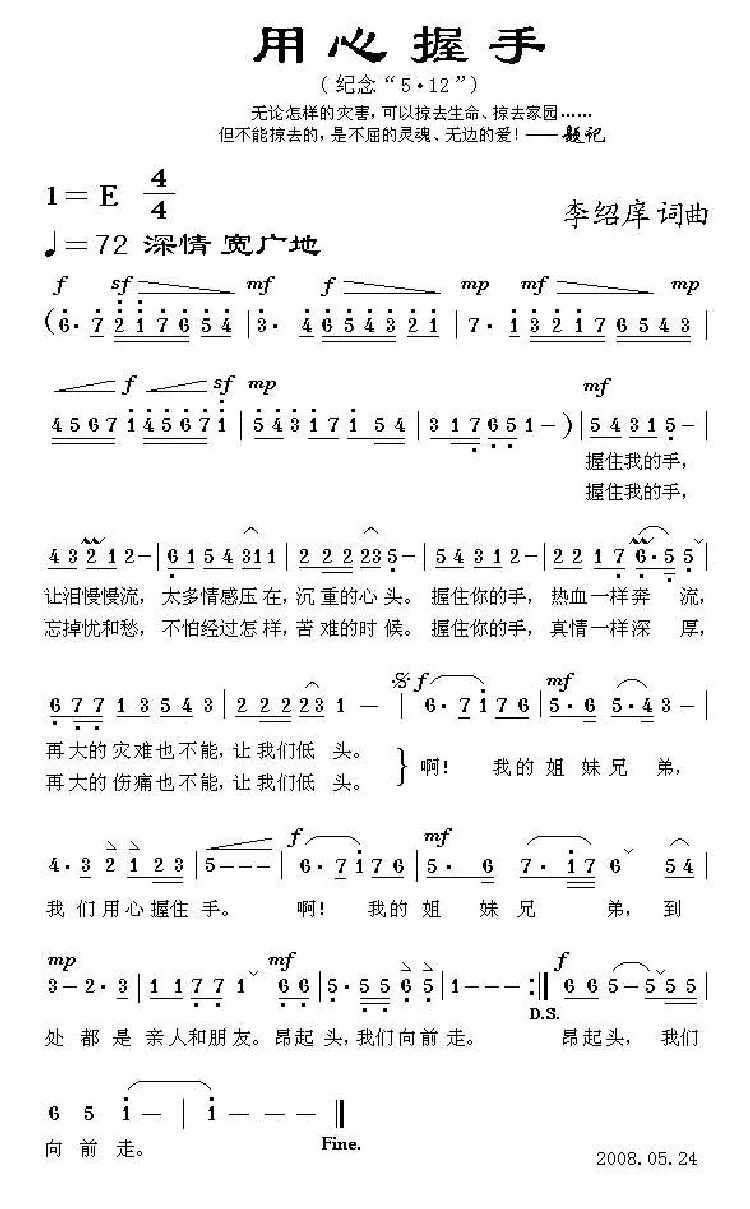 用心握手
（纪念“5·12”）
无论怎样的灾害，可以掠去生命、掠去家园……
但不能掠去的，是不屈的灵魂、无边的爱！——题记
1＝E 4/4
李绍庠 词曲
♩＝72 深情 宽广地
f sf mf f mp mf mp
(6·7 2 1 7 6 5 4 | 3· 4 6 5 4 3 2 1 | 7· 1 3 2 1 7 6 5 4 3 |
f sf mp mf
4 5 6 7 1 4 5 6 7 1 | 5 4 3 1 7 1 5 4 | 3 1 7 6 5 1 – ) | 5 4 3 1 5 – |
握住我的手，
握住我的手，
4 3 2 1 2 – | 6 1 5 4 3 1 1 | 2 2 2 2 3 5 – | 5 4 3 1 2 – | 2 2 1 7 6· 5 5 |
让泪慢慢流，太多情感压在，沉重的心头。握住你的手，热血一样奔 流，
忘掉忧和愁，不怕经过怎样，苦难的时候。握住你的手，真情一样深 厚，
𝄋 f mf
6 7 7 1 3 5 4 3 | 2 2 2 2 3 1 – | 6· 7 1 7 6 | 5· 6 5· 4 3 – |
再大的灾难也不能，让我们低 头。
再大的伤痛也不能，让我们低 头。
啊！ 我的 姐 妹兄 弟，
f mf
4· 3 2 1 2 3 | 5 – – – | 6· 7 1 7 6 | 5· 6 7· 1 7 6 | 5 4 |
我 们用心握住 手。 啊！ 我的 姐 妹 兄 弟，到
mp mf f
3 – 2· 3 | 1 1 7 7 1 | 6 6 | 5· 5 5 6 5 | 1 – – – :‖ 6 6 5 – 5 5 5 |
D.S.
处 都 是 亲人和朋友。昂起头，我们向前走。 昂起头，我们
6 5 1 – | 1 – – – ‖
向 前 走。
Fine.
2008.05.24